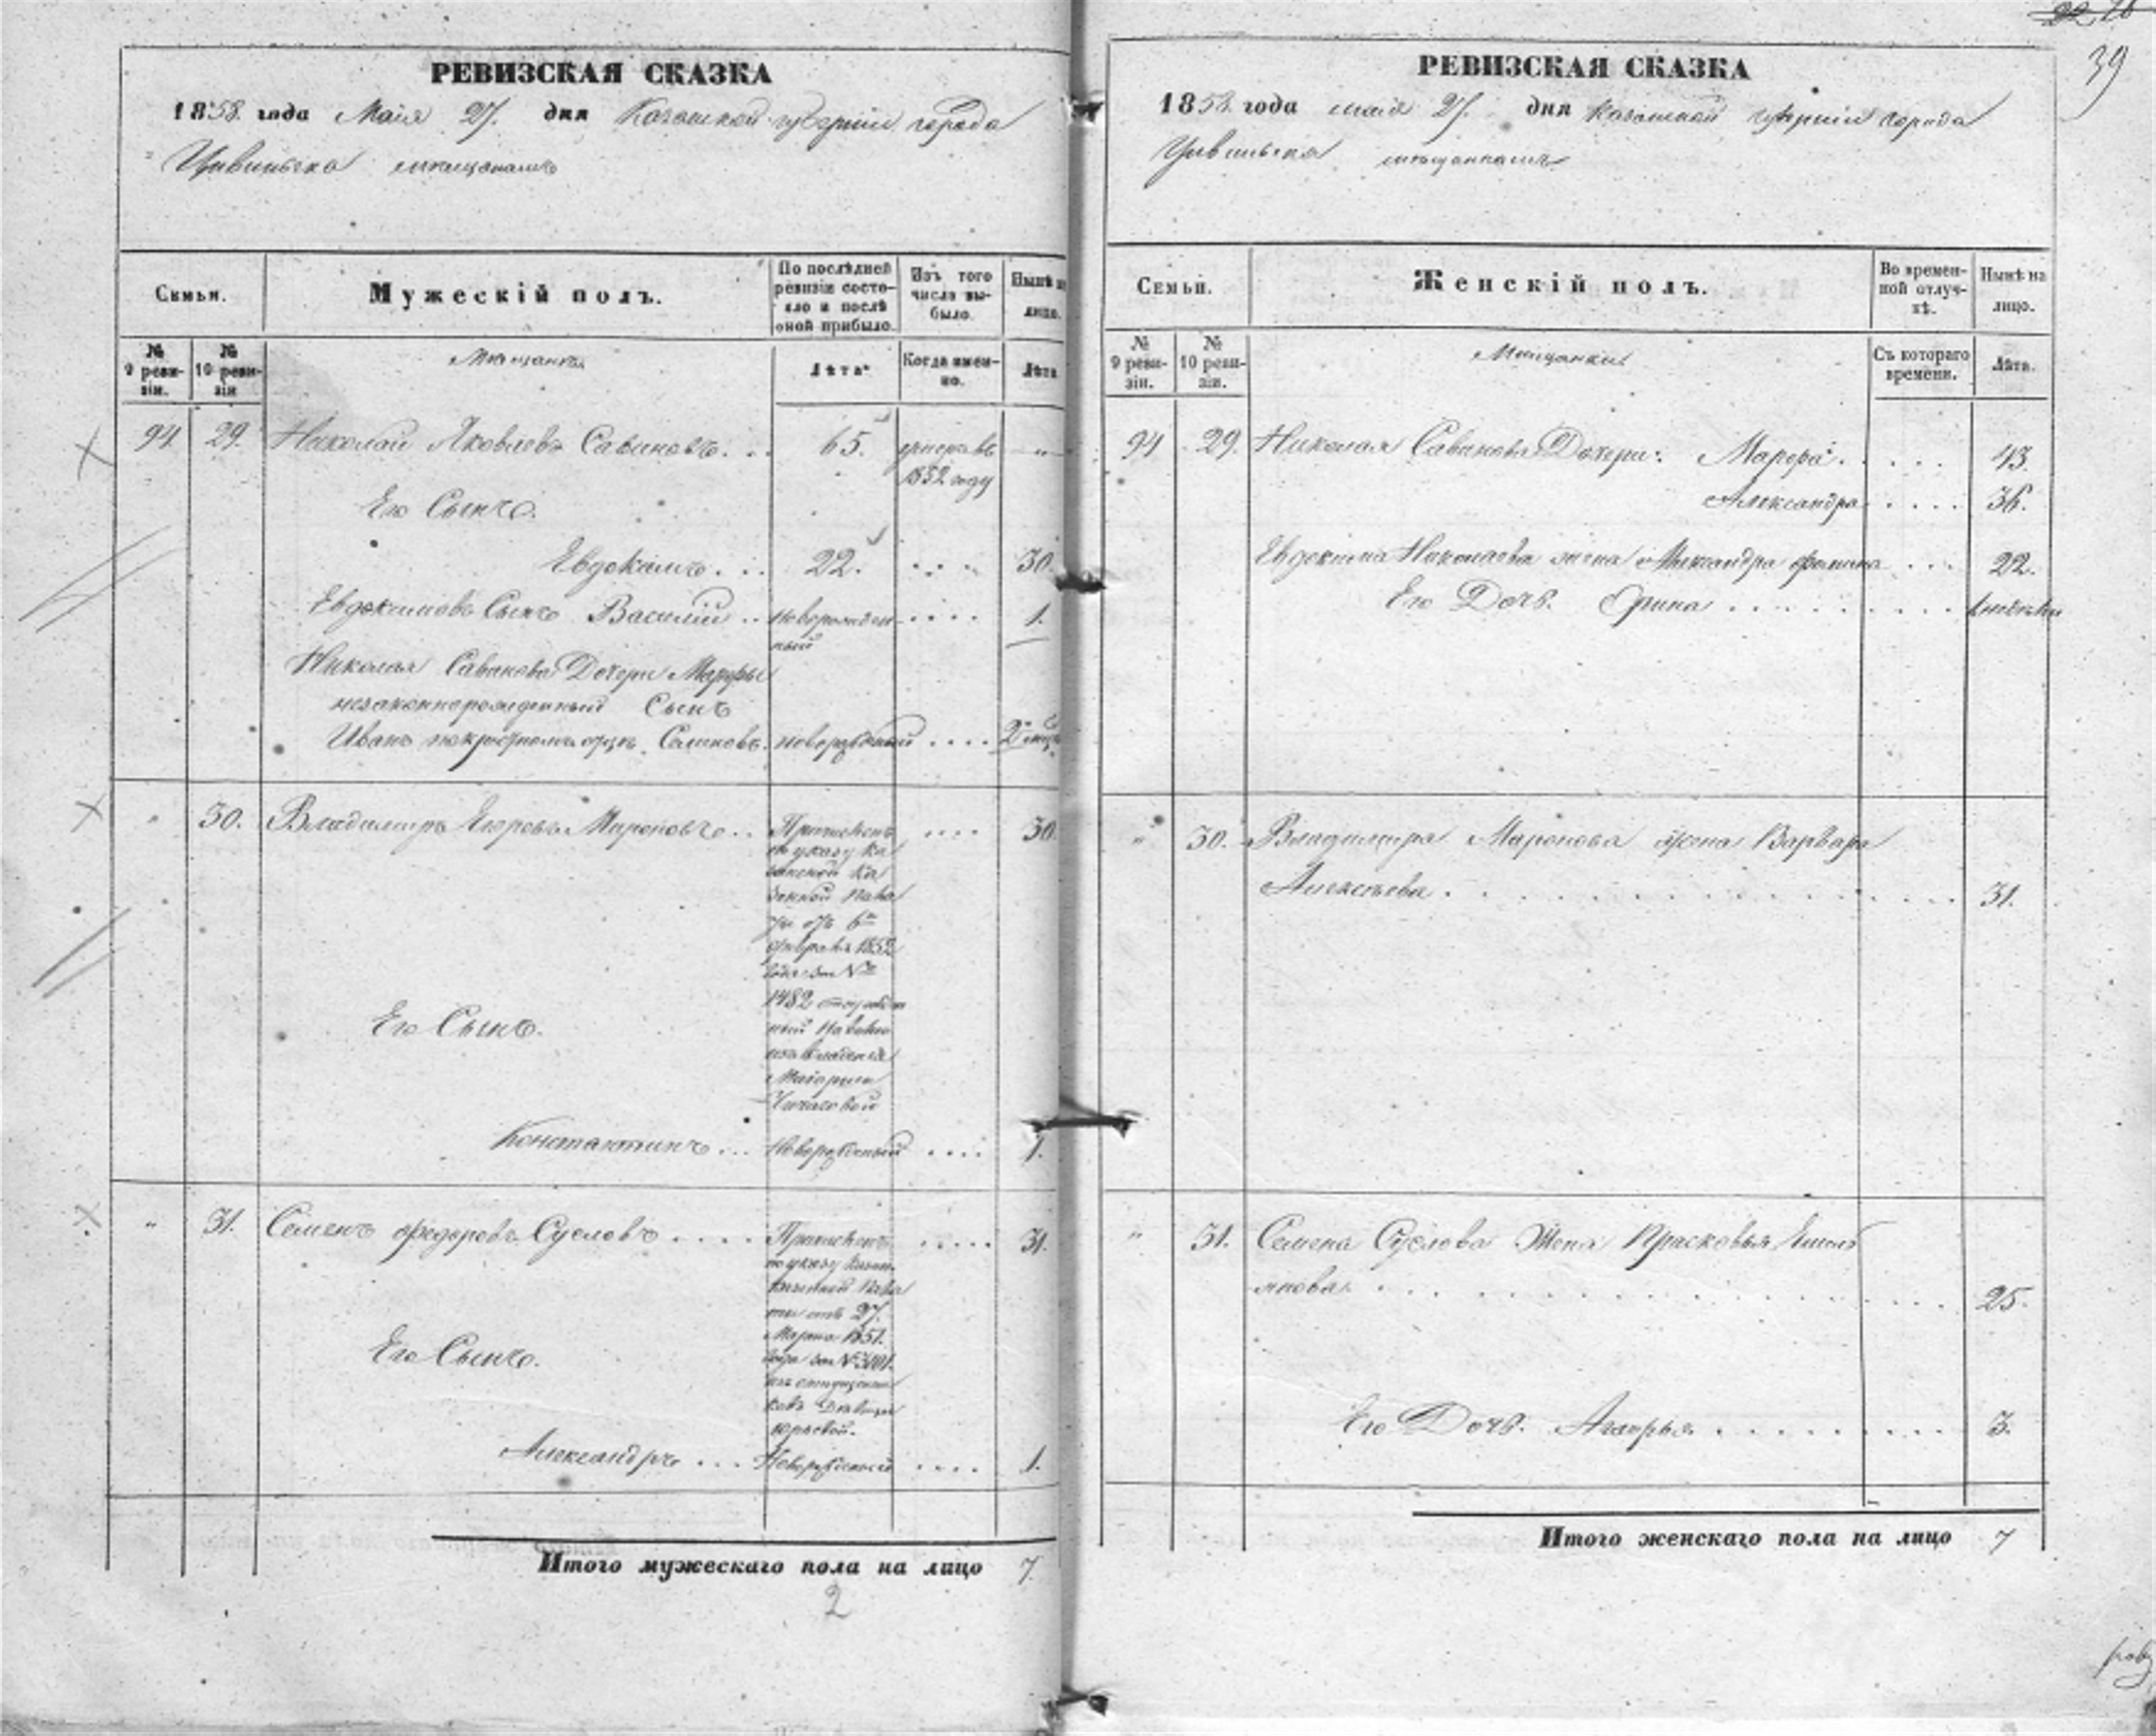 РЕВИЗСКАЯ СКАЗКА
1858. года Маія 27. дня Казанской губерніи города
Цивильска мѣщанамъ
Семьи.
Мужескій полъ.
По послѣдней ревизіи состояло и послѣ оной прибыло.
Изъ того числа выбыло.
Нынѣ на лицо.
№ 9 ревизіи.
№ 10 ревизіи
Мѣщанъ.
Лѣта
Когда именно.
Лѣта
94 29. Николай Яковлевъ Савиновъ. . . 65. умеръ въ „
1852 году
Его Сынъ.
Евдокимъ. . . 22. . . . . 30.
Евдокимовъ Сынъ Василій . . новорожден . . . . 1.
ный
Николая Савинова Дочери Марфы
незаконнорожденный Сынъ
Иванъ по крестномъ отцѣ новорожденный . . . . 2
„ 30. Владимиръ Мироновъ . . Причисленъ . . . . 30
по указу Ка
занской Ка
зенной Пала
ты отъ 6го
февраля 1852
года за №
1482 отпущен
ный на волю
изъ владенія
Маіорши
Чичаговой
Его Сынъ.
Константинъ . . . Новорожденный . . . . 1.
„ 31. Семенъ Федоровъ Сусловъ . . . . Причисленъ . . . . . 31.
по указу Казен.
Казенной Пала
ты отъ 27.
Марта 1851.
года за №
изъ
Его Сынъ.
Александръ . . . Новорожденный . . . . 1.
Итого мужескаго пола на лицо 7
2
22
39
РЕВИЗСКАЯ СКАЗКА
1858. года маія 27. дня Казанской губерніи города
Цивильска мѣщанамъ
Семьи.
Женскій полъ.
Во временной отлучкѣ.
Нынѣ на лицо.
№ 9 ревизіи.
№ 10 ревизіи.
Мѣщанки.
Съ котораго времени.
Лѣта.
94 29. Николая Савинова Дочери: Марфа . . . . 43.
Александра . . . . 36.
Евдокима Николаева жена Александра Фомина . . . 22.
Его Дочь. Орина . . . . . . . . .
„ 30. Владимира Миронова жена Варвара
Алексѣева . . . . . . . . . . . . 31.
„ 31. Семена Суслова Жена Прасковья Емель
янова . . . . . . . . . . . . 25.
Его Дочь. Агафья . . . . . . . . . 3.
Итого женскаго пола на лицо 7